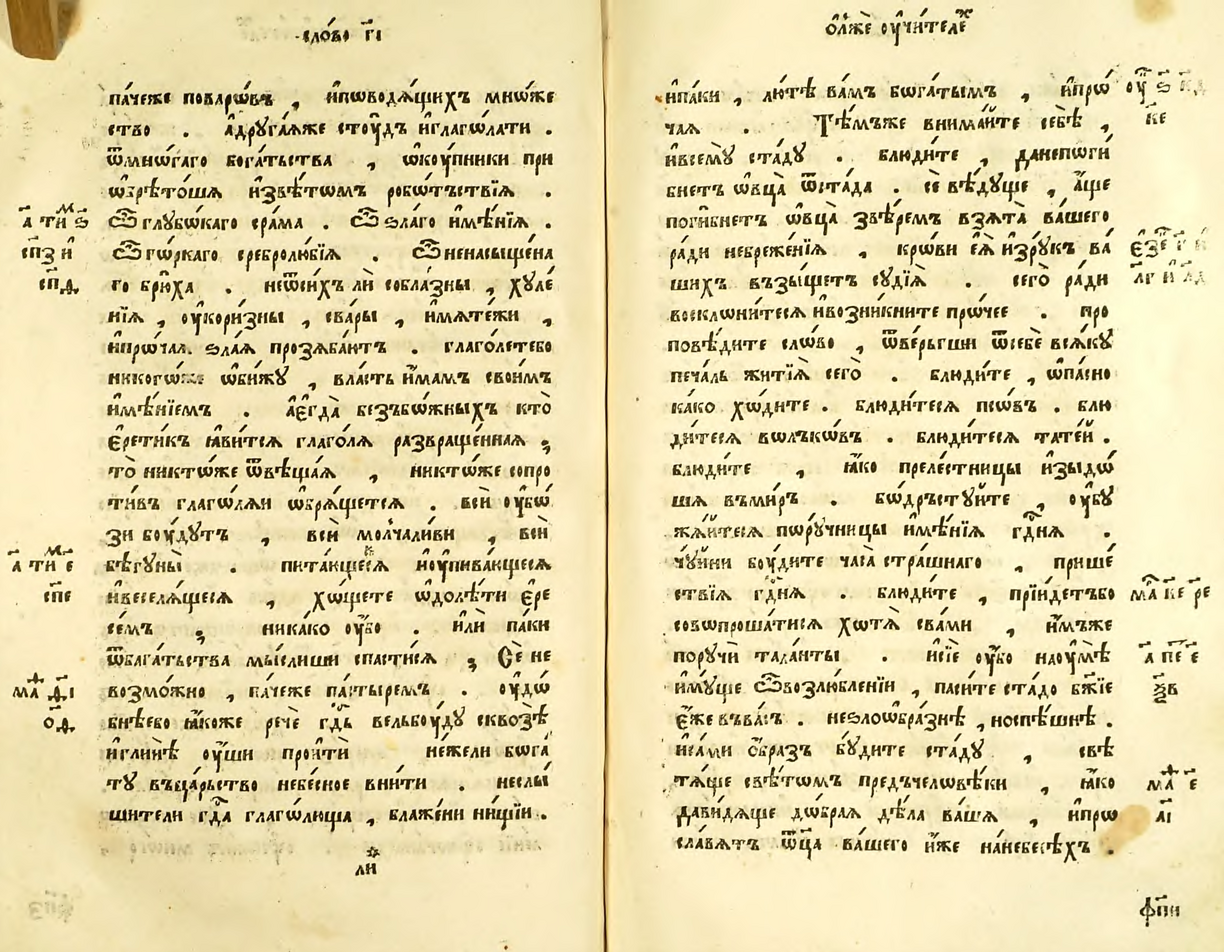 слово гі
пачеже поварѡвъ , ипѡводящихъ мнѡже
ство . адругаяже стоудъ иглагѡлати .
ѿмнѡгаго богатьства , ѡкоупники при
ѡбрѣтоша извѣтѡмъ робѡтъствїа .
а ти ѕ ѿ глубѡкаго срама . ѿ ѕлаго имѣнїа .
спз и ѿ гѡркаго сребролюбїа . ѿ ненасыщена
спд го брюха . неѿсихъ ли соблазны , хуле
нїа , оукоризны , свары , имятежи ,
ипрѡчая. ѕлая прозябаютъ . глаголетебо
ѡбижу , власть имамъ своимъ
имѣнїемъ . аегда безъбѡжныхъ кто
еретикъ явится глаголя развращенная ;
то никтоже ѿвѣщая , никтоже сопро
тивъ глагѡляи ѡбрящется . вси оубѡ
зи боудутъ , вси молчаливи , вси
а ти е бѣгуны . питающеся иоупивающеся
спе ивеселящеся , хѡщете ѡдолѣти ере
семъ ; никако оубо . или паки
ѿбагатьства мыслиши спастися ; Се не
ма ді возможно , пачеже пастыремъ . оудѡ
од бнѣебо якоже рече гдь вельбоуду сквозѣ
иглинѣ оуши проити нежели бѡга
ту въцарьство небесное внити . неслы
шители гда глагѡлюща , блажени нищїи .
ли
ѡлже оучителе
ипаки , лютѣ вамъ бѡгатымъ , ипрѡ оу ѕ
чая . Тѣмъже внимайте себѣ , ке
ивсему стаду . блюдите , данепѡги
бнетъ ѡвца ѿстада . се вѣдуще , аще
погибнетъ ѡвца звѣремъ взята вашего
ради небреженїа , крѡви ея изрукъ ва
шихъ възыщетъ судїа . сего ради
восклѡнитеся ивозникните прѡчее . про
повѣдите слѡво , ѿверьгши ѿсебе всяку
печаль житїа сего . блюдите , ѡпасно
како хѡдите . блюдитеся псѡвъ . блю
дитеся вѡлъкѡвъ . блюдитеся татей .
блюдите , яко прелестницы изыдѡ
ша въмиръ . бѡдръствуйте , оубу
жайтеся пѡручницы имѣнїа гдня .
чуйни боудите часа страшнаго , прише
ствїа гдня . блюдите , прїидетъбо ма ке ре
совѡпрошатися хѡтя свами , имъже
поручи таланты . исїе оубо наоумѣ а пе е
имуще ѿвозлюбленїи , пасите стадо бжїе
еже въвасъ . неѕлоѡбразнѣ , носпѣшнѣ .
исами образъ будите стаду , свѣ
тяще свѣтѡмъ предъчелѡвѣки , яко ма е
давидяще дѡбрая дѣла ваша , ипрѡ аі
славятъ ѿца вашего иже нанебесѣхъ .
фпи